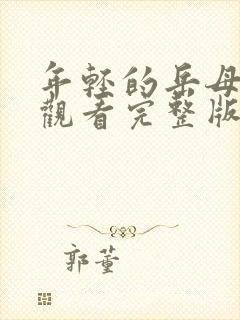 年輕的岳母
觀看完整版
郭董